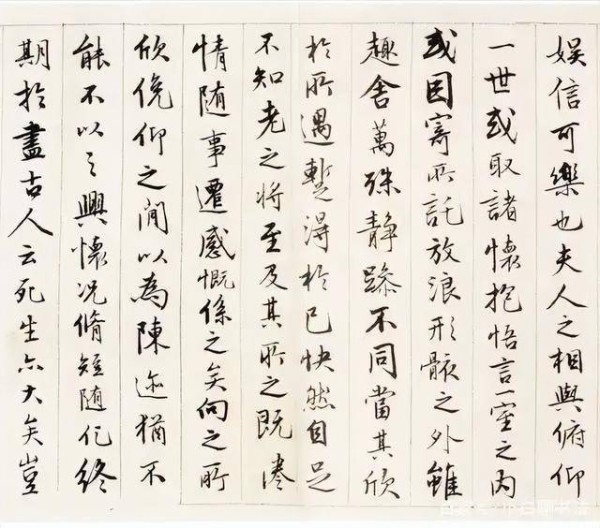 娱信可樂也夫人之相與俯仰
一世或取諸懷抱悟言一室之内
或因寄所託放浪形骸之外雖
趣舍萬殊静躁不同當其欣
於所遇暫得於己快然自足
不知老之將至及其所之既惓
情随事遷感慨係之矣向之所
欣俛仰之間以為陳迹猶不
能不以之興懷况脩短随化終
期於盡古人云死生亦大矣豈